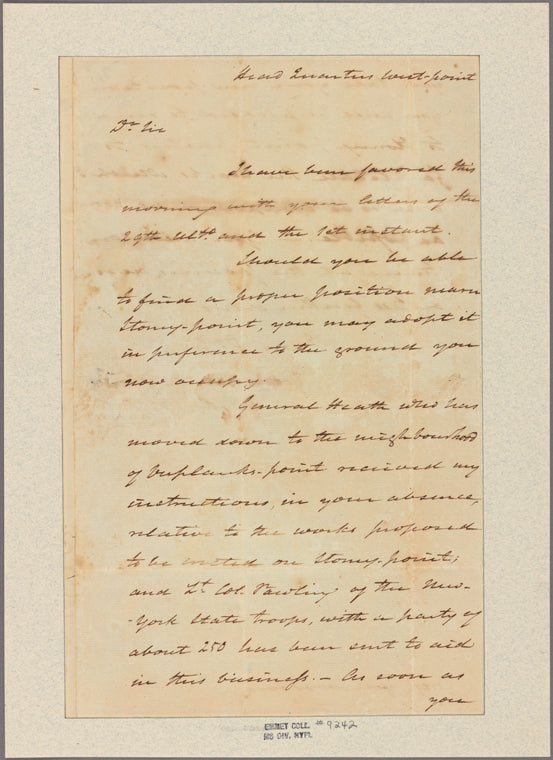 Head Quarters West-point
Dr Sir
I have been favored this
morning with your letters of the
29th Ulto. and the 1st instant.
Should you be able
to find a proper position near
Stoney-point, you may adopt it
in preference to the ground you
now occupy.
General Heath who has
moved down to the neighbourhood
of Verplanks-point received my
instructions, in your absence,
relative to the works proposed
to be erected on Stoney-point;
and Lt. Col. Pawling of the New-
-York State troops, with a party of
about 250 has been sent to aid
in this business. — As soon as
you
EMMET COLL. # 9242
MS DIV. NYPL